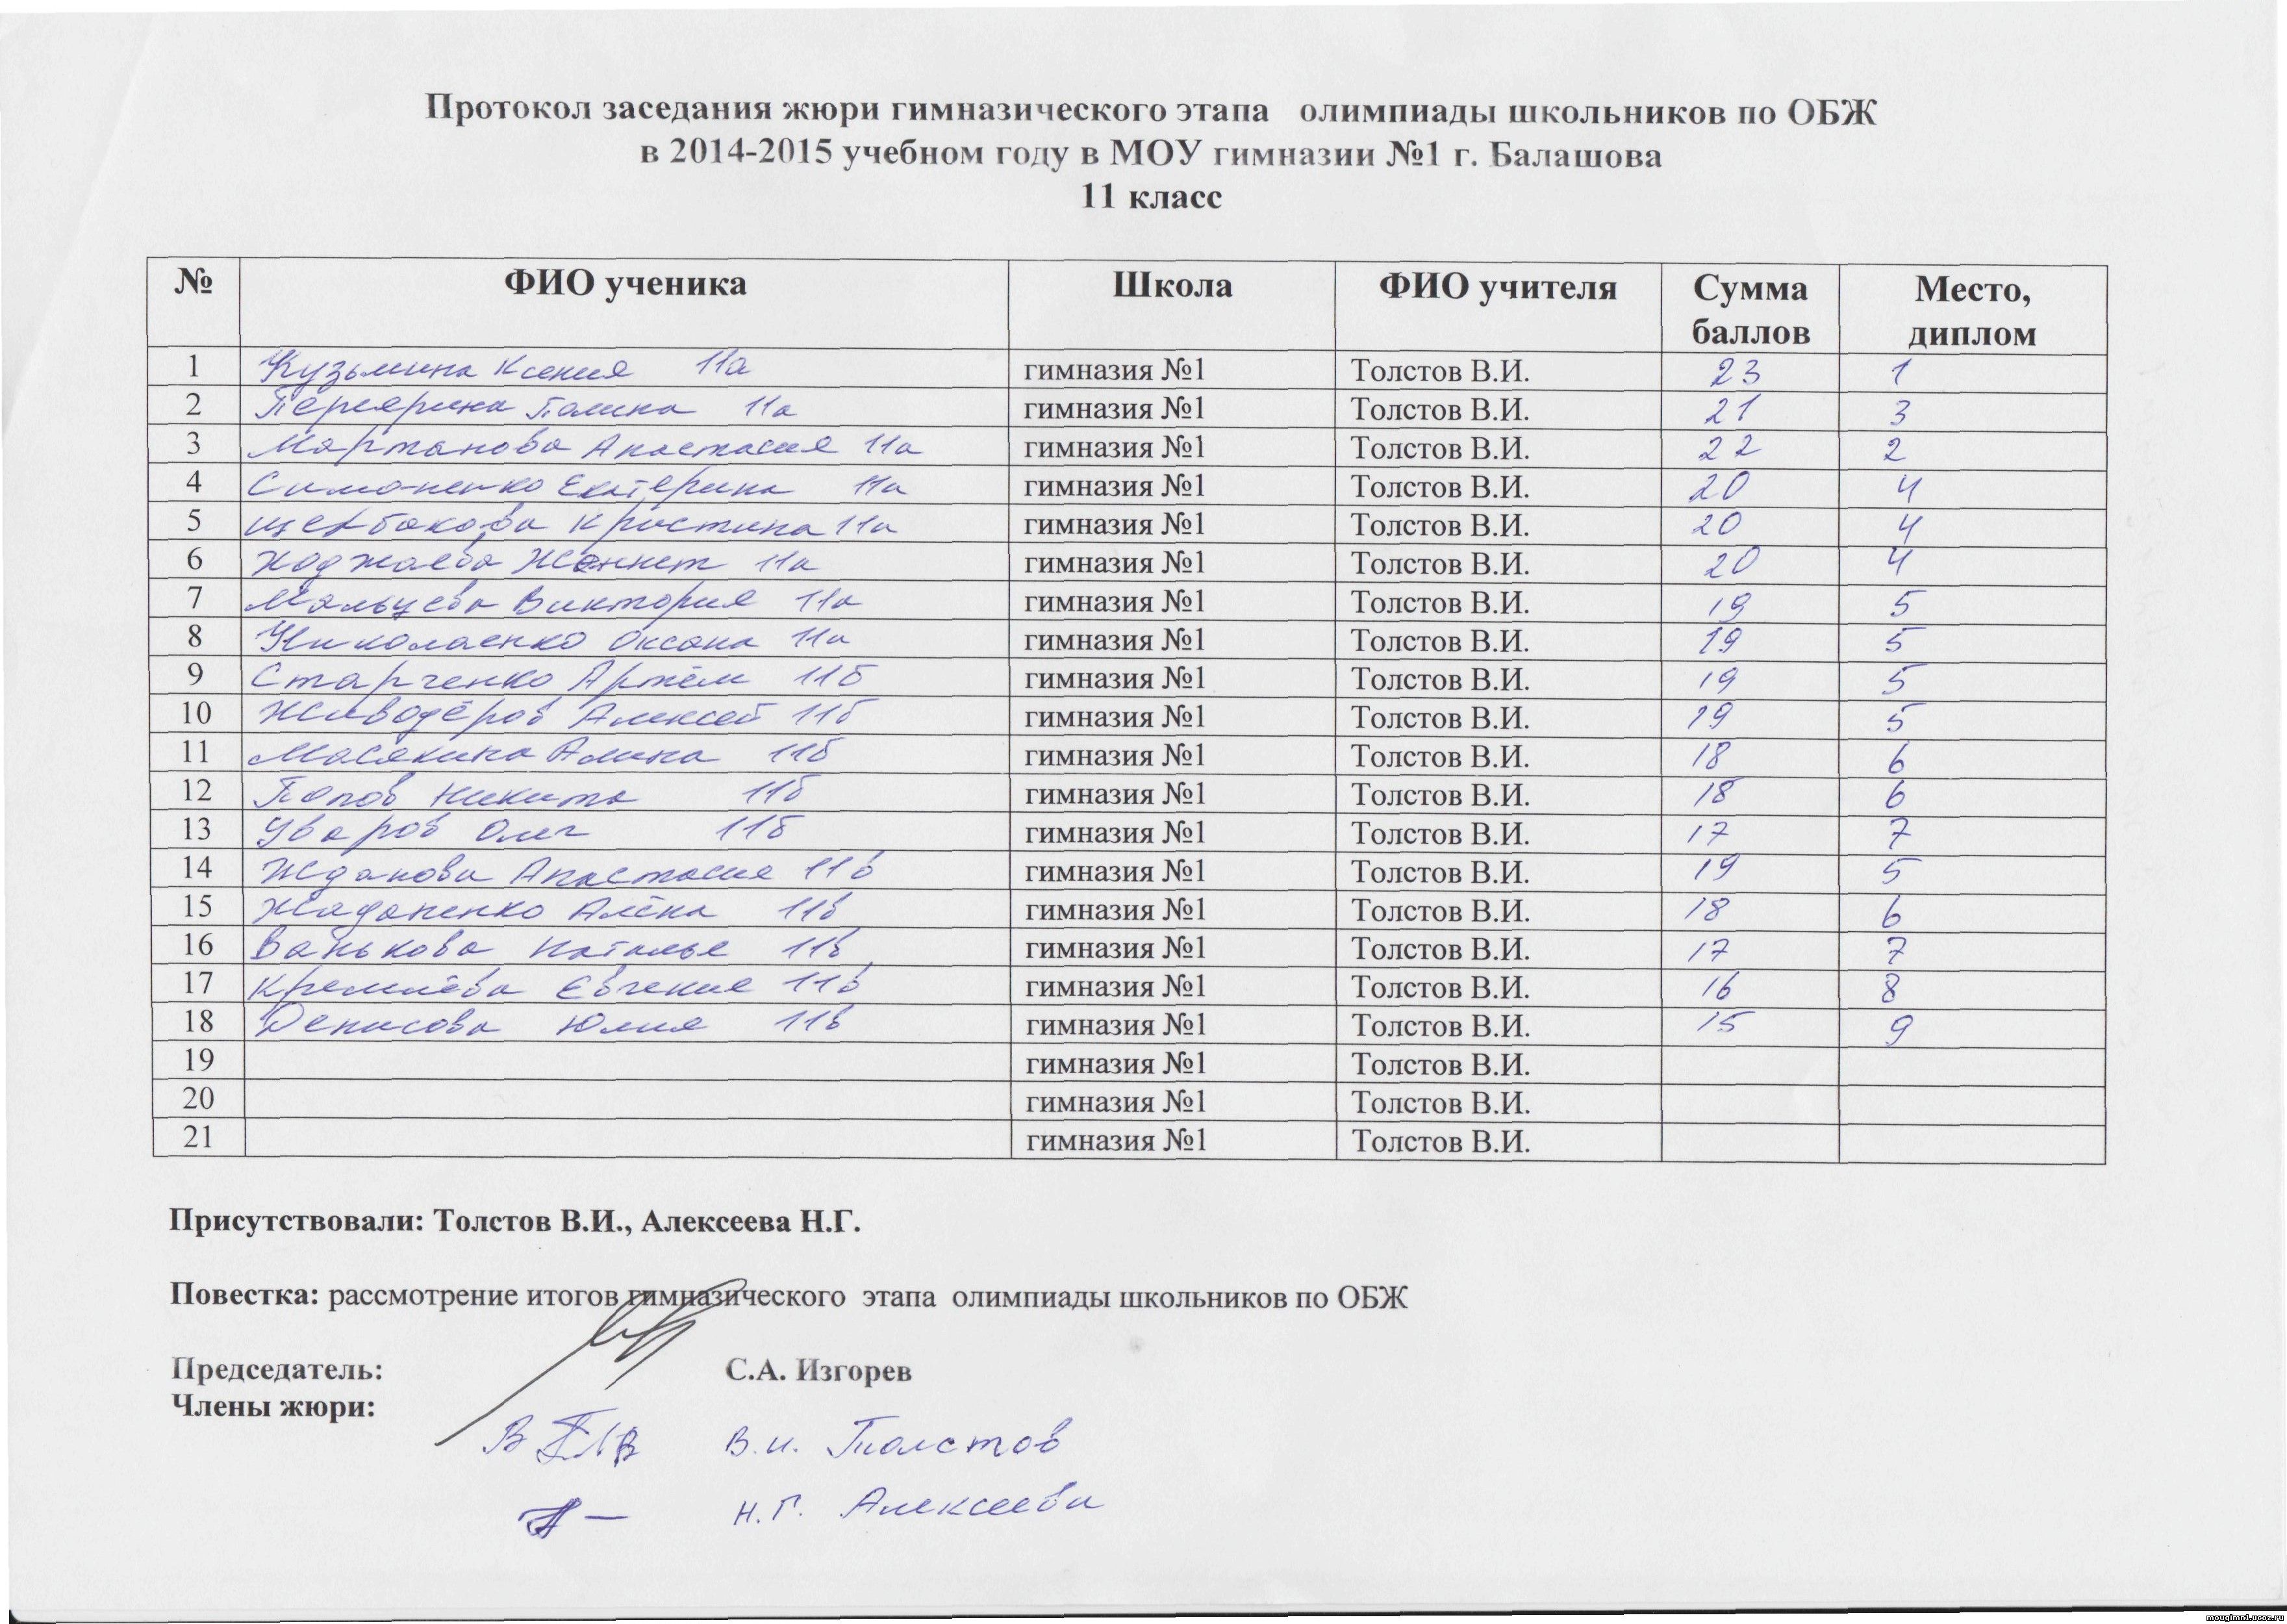 Протокол заседания жюри гимназического этапа олимпиады школьников по ОБЖ
в 2014-2015 учебном году в МОУ гимназии №1 г. Балашова
11 класс
№ ФИО ученика Школа ФИО учителя Сумма баллов Место, диплом
1 Кузьмина Ксения 11а гимназия №1 Толстов В.И. 23 1
2 Полина 11а гимназия №1 Толстов В.И. 21 3
3 Мартанова Анастасия 11а гимназия №1 Толстов В.И. 22 2
4 Симоненко Екатерина 11а гимназия №1 Толстов В.И. 20 4
5 Щербакова Кристина 11а гимназия №1 Толстов В.И. 20 4
6 Ходжаева Женнет 11а гимназия №1 Толстов В.И. 20 4
7 Мальцева Виктория 11а гимназия №1 Толстов В.И. 19 5
8 Николаенко Оксана 11а гимназия №1 Толстов В.И. 19 5
9 Старченко Артём 11б гимназия №1 Толстов В.И. 19 5
10 Живодёров Алексей 11б гимназия №1 Толстов В.И. 19 5
11 Масякина Алина 11б гимназия №1 Толстов В.И. 18 6
12 Попов Никита 11б гимназия №1 Толстов В.И. 18 6
13 Уваров Олег 11б гимназия №1 Толстов В.И. 17 7
14 Жданова Анастасия 11в гимназия №1 Толстов В.И. 19 5
15 Жидапенко Алёна 11в гимназия №1 Толстов В.И. 18 6
16 Ванькова Наталья 11в гимназия №1 Толстов В.И. 17 7
17 Кремлёва Евгения 11в гимназия №1 Толстов В.И. 16 8
18 Денисова Юлия 11в гимназия №1 Толстов В.И. 15 9
19 гимназия №1 Толстов В.И.
20 гимназия №1 Толстов В.И.
21 гимназия №1 Толстов В.И.
Присутствовали: Толстов В.И., Алексеева Н.Г.
Повестка: рассмотрение итогов гимназического этапа олимпиады школьников по ОБЖ
Председатель: С.А. Изгорев
Члены жюри:
В.И. Толстов
Н.Г. Алексеева
mougimn1.ucoz.ru